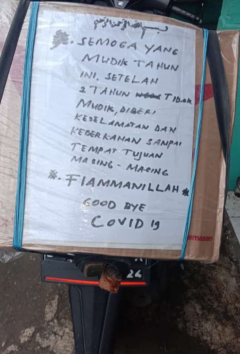 SEMOGA YANG
MUDIK TAHUN
INI, SETELAH
2 TAHUN TIDAK
MUDIK, DIBERI
KESELAMATAN DAN
KEBERKAHAN SAMPAI
TEMPAT TUJUAN
MASING - MASING
FIAMMANILLAH
GOOD BYE
- COVID 19